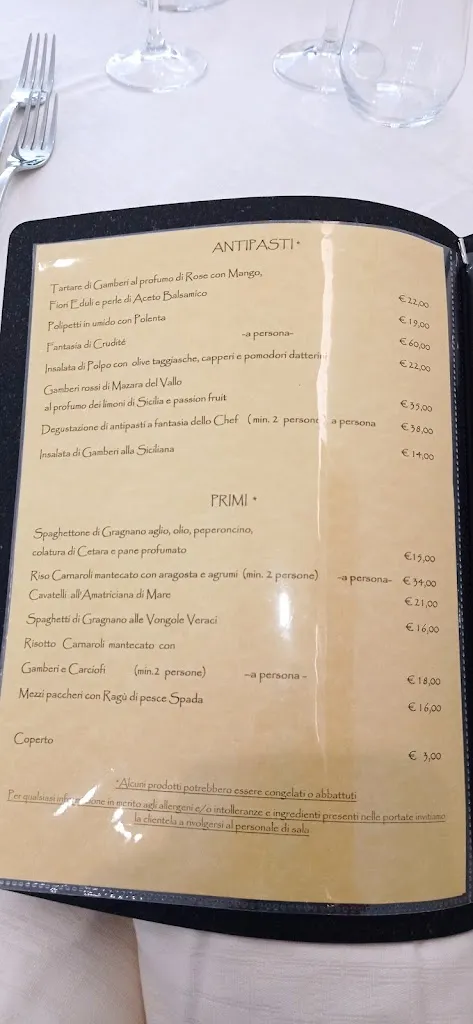 ANTIPASTI *
Tartare di Gamberi al profumo di Rose con Mango,
Fiori Eduli e perle di Aceto Balsamico € 22,00
Polipetti in umido con Polenta € 19,00
Fantasia di Crudité -a persona- € 60,00
Insalata di Polpo con olive taggiasche, capperi e pomodori datterini € 22,00
Gamberi rossi di Mazara del Vallo
al profumo dei limoni di Sicilia e passion fruit € 35,00
Degustazione di antipasti a fantasia dello Chef (min. 2 persone) a persona € 38,00
Insalata di Gamberi alla Siciliana € 14,00
PRIMI *
Spaghettone di Gragnano aglio, olio, peperoncino,
colatura di Cetara e pane profumato € 15,00
Riso Carnaroli mantecato con aragosta e agrumi (min. 2 persone) -a persona- € 34,00
Cavatelli all'Amatriciana di Mare € 21,00
Spaghetti di Gragnano alle Vongole Veraci € 16,00
Risotto Carnaroli mantecato con
Gamberi e Carciofi (min.2 persone) -a persona- € 18,00
Mezzi paccheri con Ragù di pesce Spada € 16,00
Coperto € 3,00
*Alcuni prodotti potrebbero essere congelati o abbattuti
Per qualsiasi informazione in merito agli allergeni e/o intolleranze e ingredienti presenti nelle portate invitiamo
la clientela a rivolgersi al personale di sala